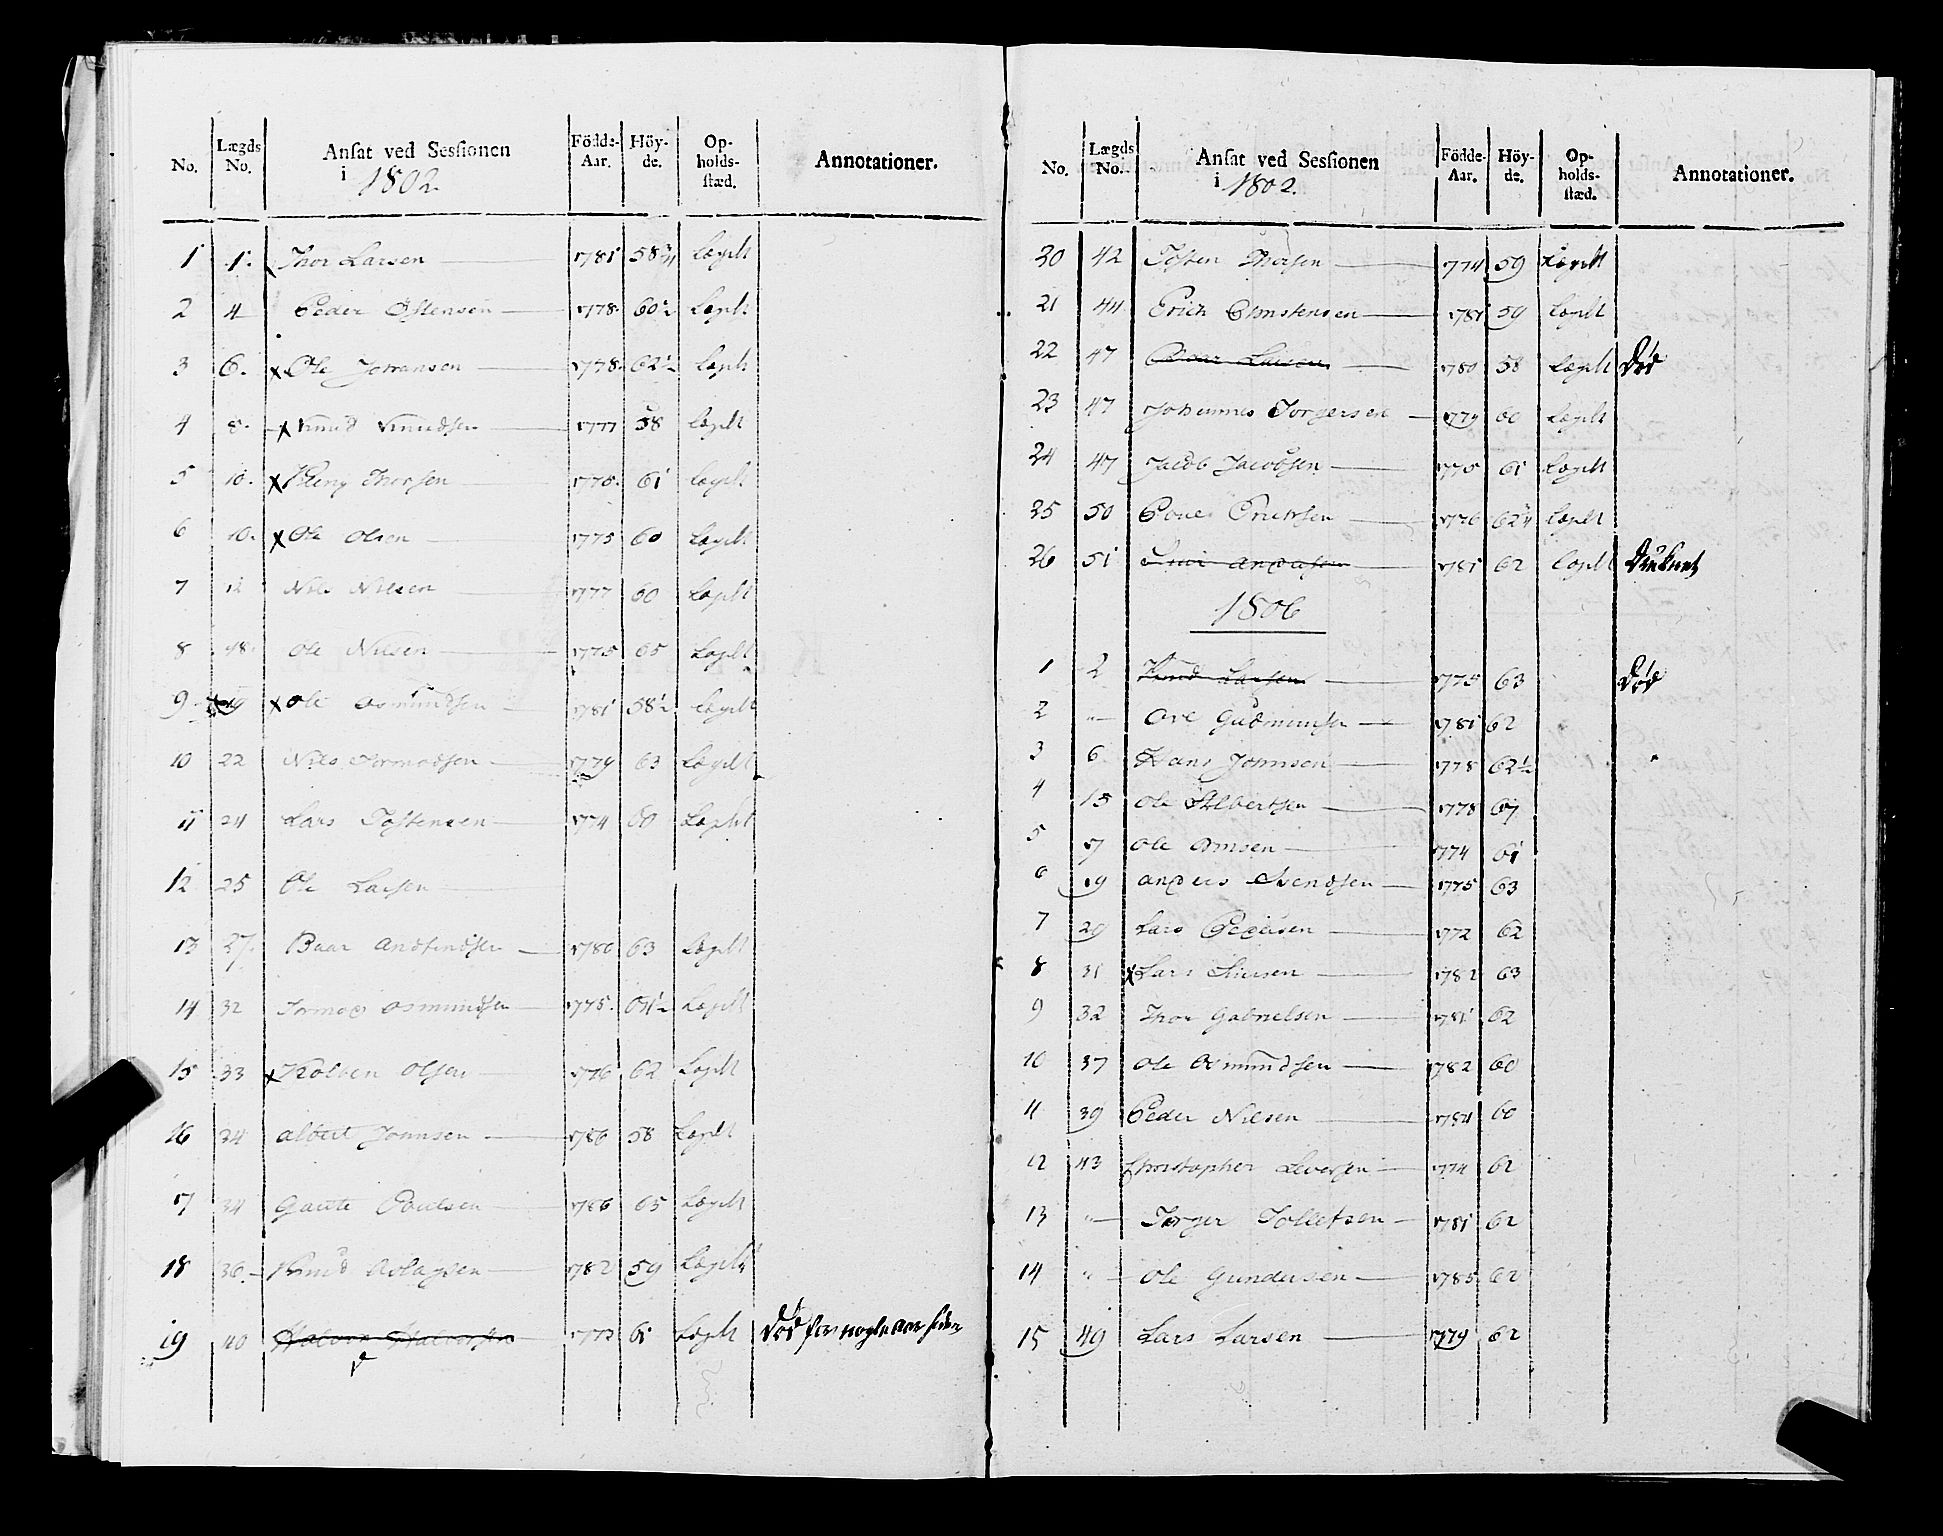 No. Lægds No. Ansat ved Sessionen i 1802. Födde-Aar. Höy-de. Op-holds-stæd. Annotationer.
1 1. Thor Larsen 1781 58 3/4 Lægdt
2 4 Peder Östensen 1778. 60½ Lægdt
3 6. x Ole Joransen 1778. 62½ Lægdt
4 8. x Knud Knudsen 1777 58 Lægdt
5 10. x Thorsen 1775. 61 Lægdt
6 10. x Ole Olsen 1775 60 Lægdt
7 12 Nils Nilsen 1777 60 Lægdt
8 18. Ole Nilsen 1775 65 Lægdt
9 19 x Ole Osmundsen 1781 58½ Lægdt
10 22 Nils Tormodsen 1779 63 Lægdt
11 24 Lars Tostensen 1774 60 Lægdt
12 25 Ole Larsen
13 27. Baar 1780 63 Lægdt
14 32 Tormod Osmundsen 1775. 61½ Lægdt
15 33 x Kolben Olsen 1776 62 Lægdt
16 34 Albert Jonnsen 1786 58 Lægdt
17 34 Gaute Poulsen 1786 65 Lægdt
18 36. Knud Aslagsen 1782 59 Lægdt
19 40 Halvor Halvorsen 1773 61 Lægdt Död for nogle aar siden
No. Lægds No. Ansat ved Sessionen i 1802. Födde-Aar. Höy-de. Op-holds-stæd. Annotationer.
20 42 Tosten Thorsen 1774 59 Lægdt
21 44 Erich Christensen 1781 59 Lægdt
22 47 Larsen 1780 58 Lægdt Död
23 47 Johannes Torgersen 1779 60 Lægdt
24 47 Jacob Jacobsen 1775 61 Lægdt
25 50 Ericksen 1776 62¼ Lægdt
26 51 Andersen 1781 62 Lægdt Druknet
1806
1 2 Knud Larsen 1775 63 Död
2 " Ore Gudmunsen 1781 62
3 6 Hans Jonnsen 1778 62½
4 15 Ole Albertsen 1778 67
5 17 Ole 1774 61
6 19 Anders Svendsen 1775 63
7 29 Lars Pedersen 1772 62
8 31 x Lars Iversen 1782 63
9 32 Thor Gabrielsen 1781 62
10 37 Ole Osmundsen 1782 60
11 39 Peder Nilsen 1784 60
12 43 Christopher Leversen 1774 62
13 " Torger Tollefsen 1781 62
14 " Ole Gundersen 1785 62
15 49 Lars Larsen 1779 62